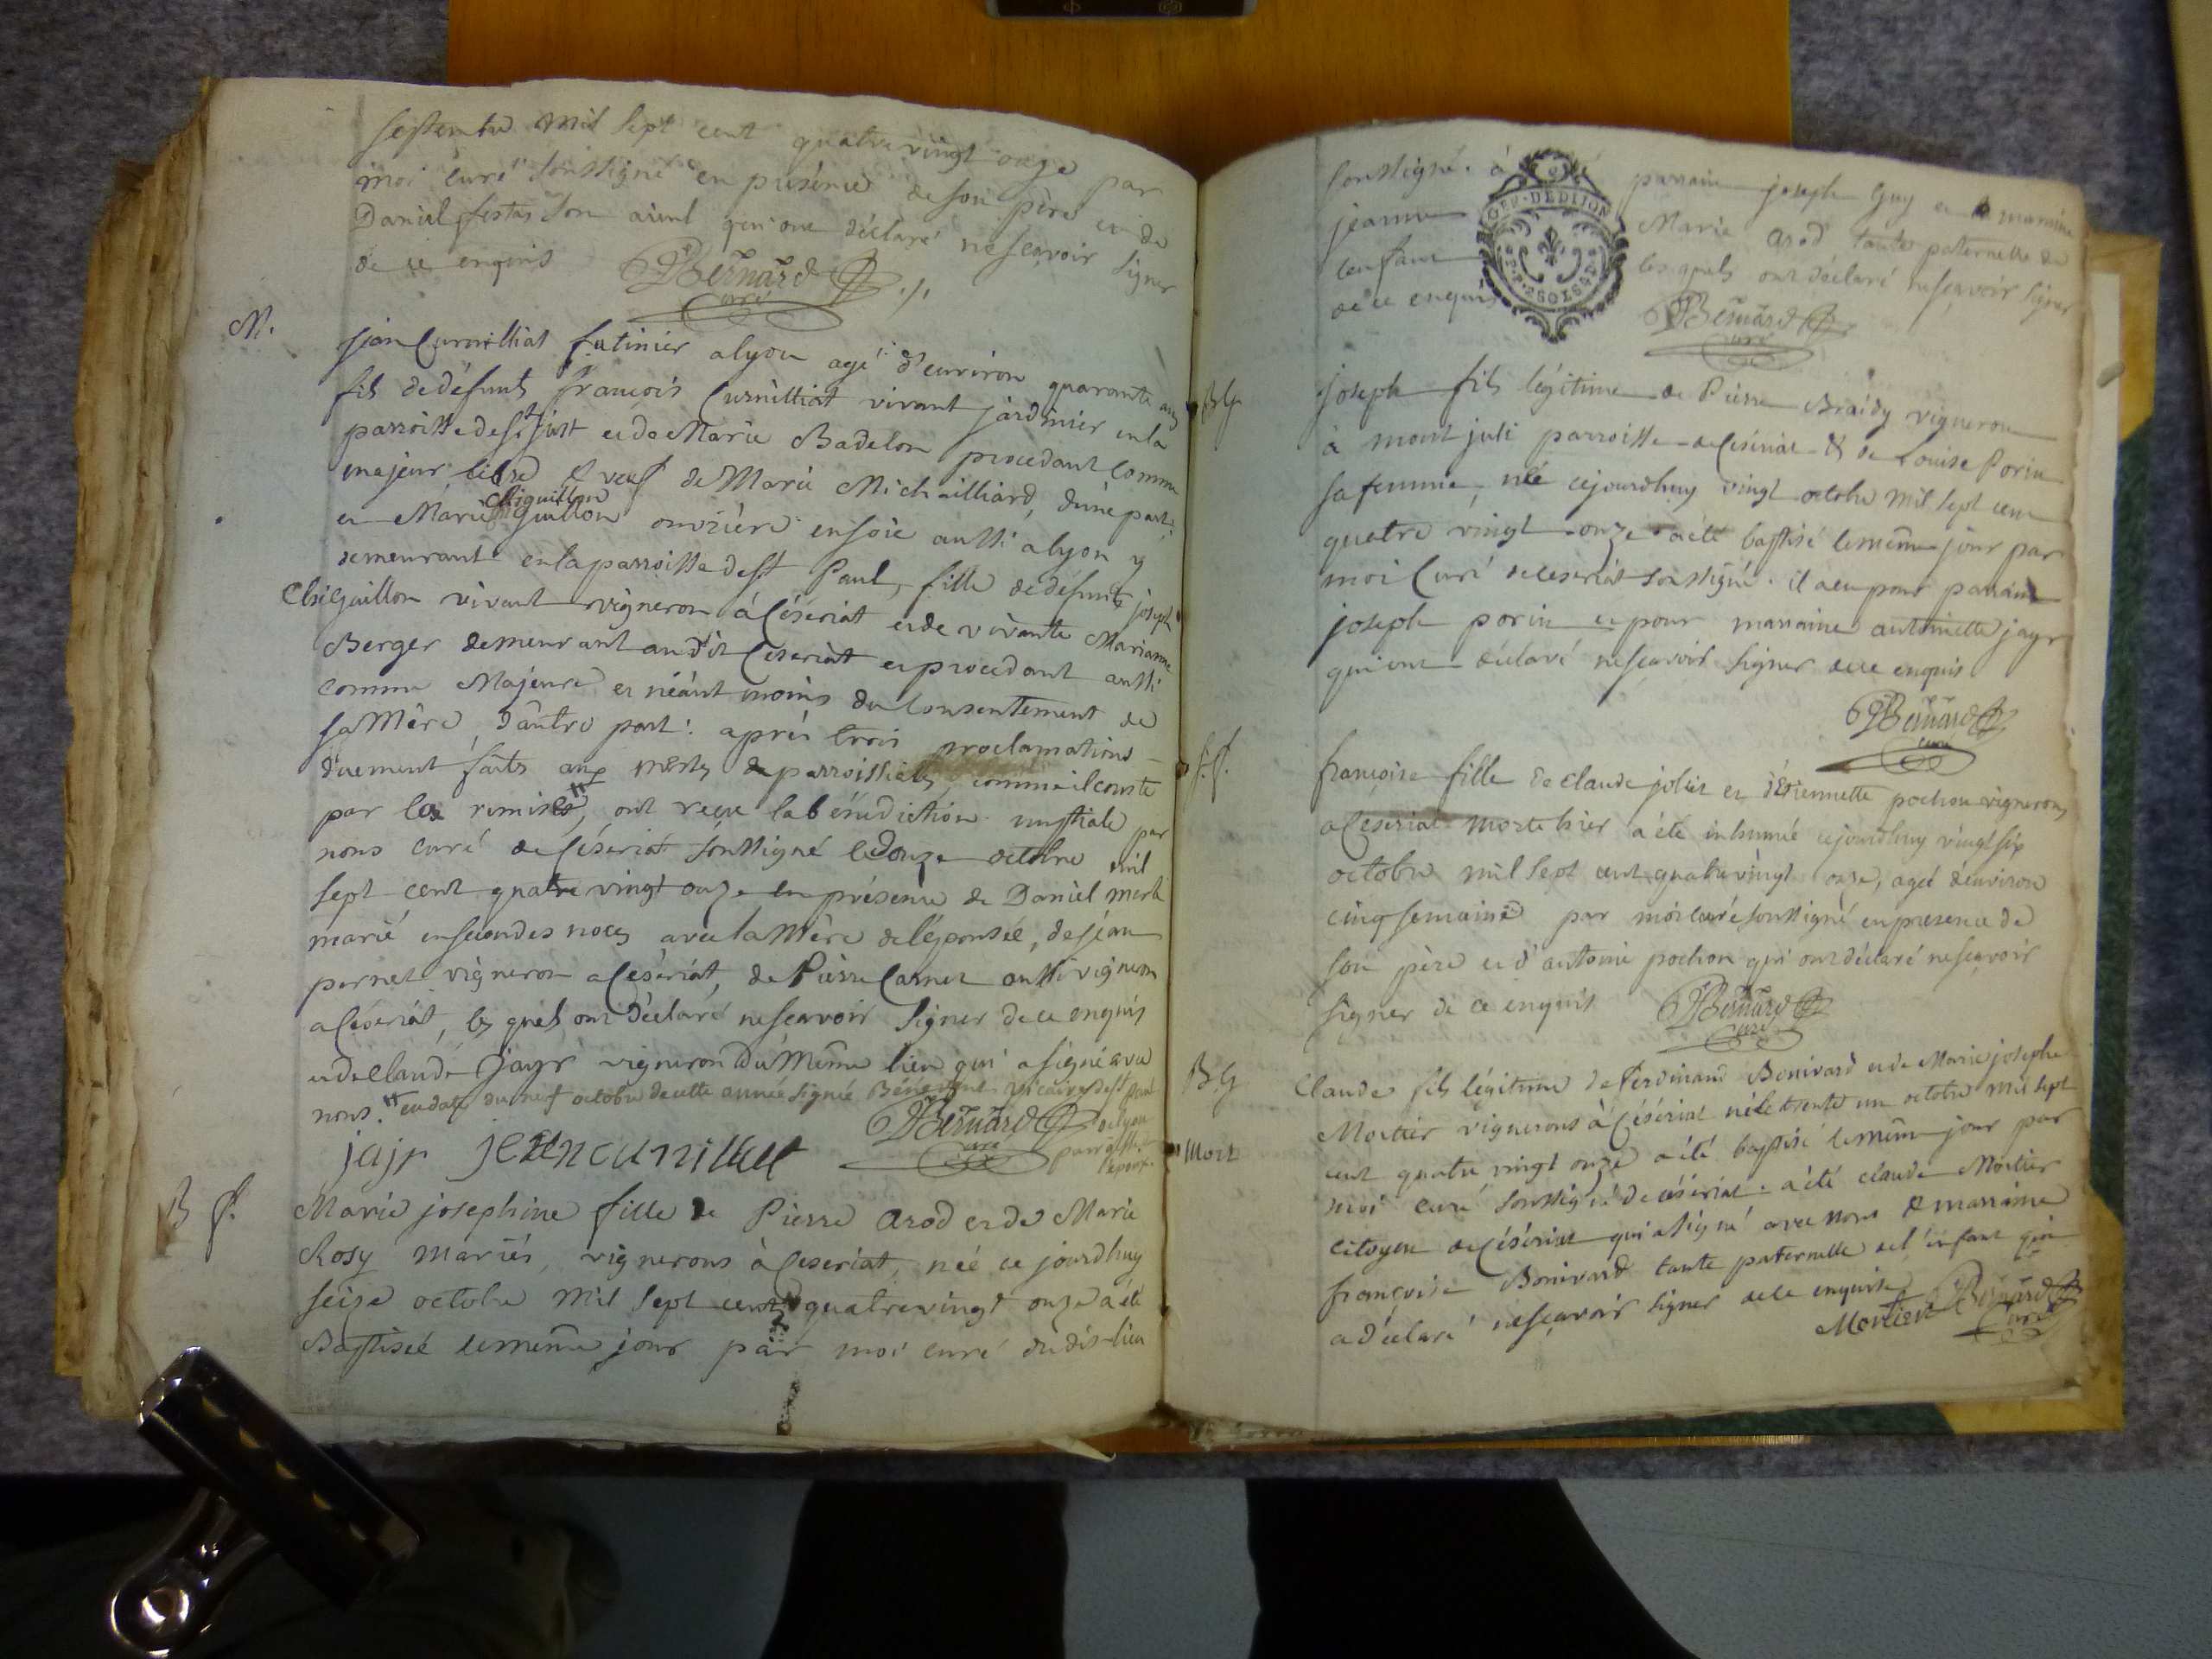 septembre mil sept cent quatre vingt onze par
moi curé soussigné en présence de son père et de
Daniel son aieul qui ont déclaré ne scavoir signer
de ce enquis Bernard curé
M.
jean Curnilliat futinier a lyon agé d'environ quarante ans
fils de défunts françois Curnilliat vivant jardinier en la
parroisse de st just et de Marie Badelon procedant comme
majeur libre & veuf de Marie Michailliard, d'une part;
et Marie Chiguillon ouvrière en soie aussi a lyon y
demeurant en la parroisse de st Paul, fille de défunt joseph
Chiguillon vivant vigneron à Céseriat et de vivante Marianne
Berger demeurant audit Céseriat et procedant aussi
comme Majeure et néant moins du Consentement de
sa Mère, d'autre part: après trois proclamations
duement faites aux messes de parroissiales, comme il conste
par les remises #, ont reçu la bénédiction nuptiale par
nous curé de Céseriat soussigné le douze octobre mil
sept cent quatre vingt onze en présence de Daniel merle
marié en secondes noces avec la Mère de l'épousée, de jean
pernet vigneron a Céseriat, de Pierre Carnet aussi vigneron
a Céseriat, les quels ont déclaré ne scavoir signer de ce enquis
et de claude jayr vigneron du Même lieu qui a signé avec
nous. # en date du neuf octobre de cette année signée vicaire de st paul
de lyon
parroisse de
l'époux.
jajr jean cunilliat Bernard curé
B f.
Marie josephine fille de Pierre arod et de Marie
Rosy mariés, vignerons à Ceseriat, née ce jourdhuy
seize octobre mil sept cent quatre vingt onze a été
Baptisée le même jour par moi curé du dit lieu
soussigné. à été parrain joseph Guy et marraine
jeanne Marie arod tante paternelle de
l'enfant les quels ont déclaré ne scavoir signer
de ce enquis Bernard curé
GEN. DE DIJON
2 SOLS
B G
joseph fils légitime de Pierre Braidy vigneron
à mont juli parroisse de Céseriat & de Louise Porin
sa femme, né cejourdhuy vingt octobre mil sept cent
quatre vingt onze a été baptisé le même jour par
moi Curé de ceseriat soussigné. il a eu pour parrain
joseph porin et pour marraine antoinette jayr
qui ont déclaré ne scavoir signer de ce enquis
Bernard curé
f. f.
françoise fille de claude joliet et d'étiennette pochon vignerons
a Ceseriat morte hier a été inhumée cejourdhuy vingt six
octobre mil sept cent quatre vingt onze, agée d'environ
cinq semaines par moi curé soussigné en presence de
son père et d'antoine pochon qui ont déclaré ne scavoir
signer de ce enquis Bernard curé
B G
Mort
Claude fils légitime de ferdinand Bonivard et de Marie josephe
Mortier vignerons à Céseriat né le trente un octobre mil sept
cent quatre vingt onze a été baptisé le même jour par
moi curé soussigné de céseriat. a été claude Mortier
citoyen de Céseriat qui a signé avec nous & marraine
françoise Bonivard tante paternelle de l'enfant qui
a déclaré ne scavoir signer de ce enquise
Mortier Bernard curé